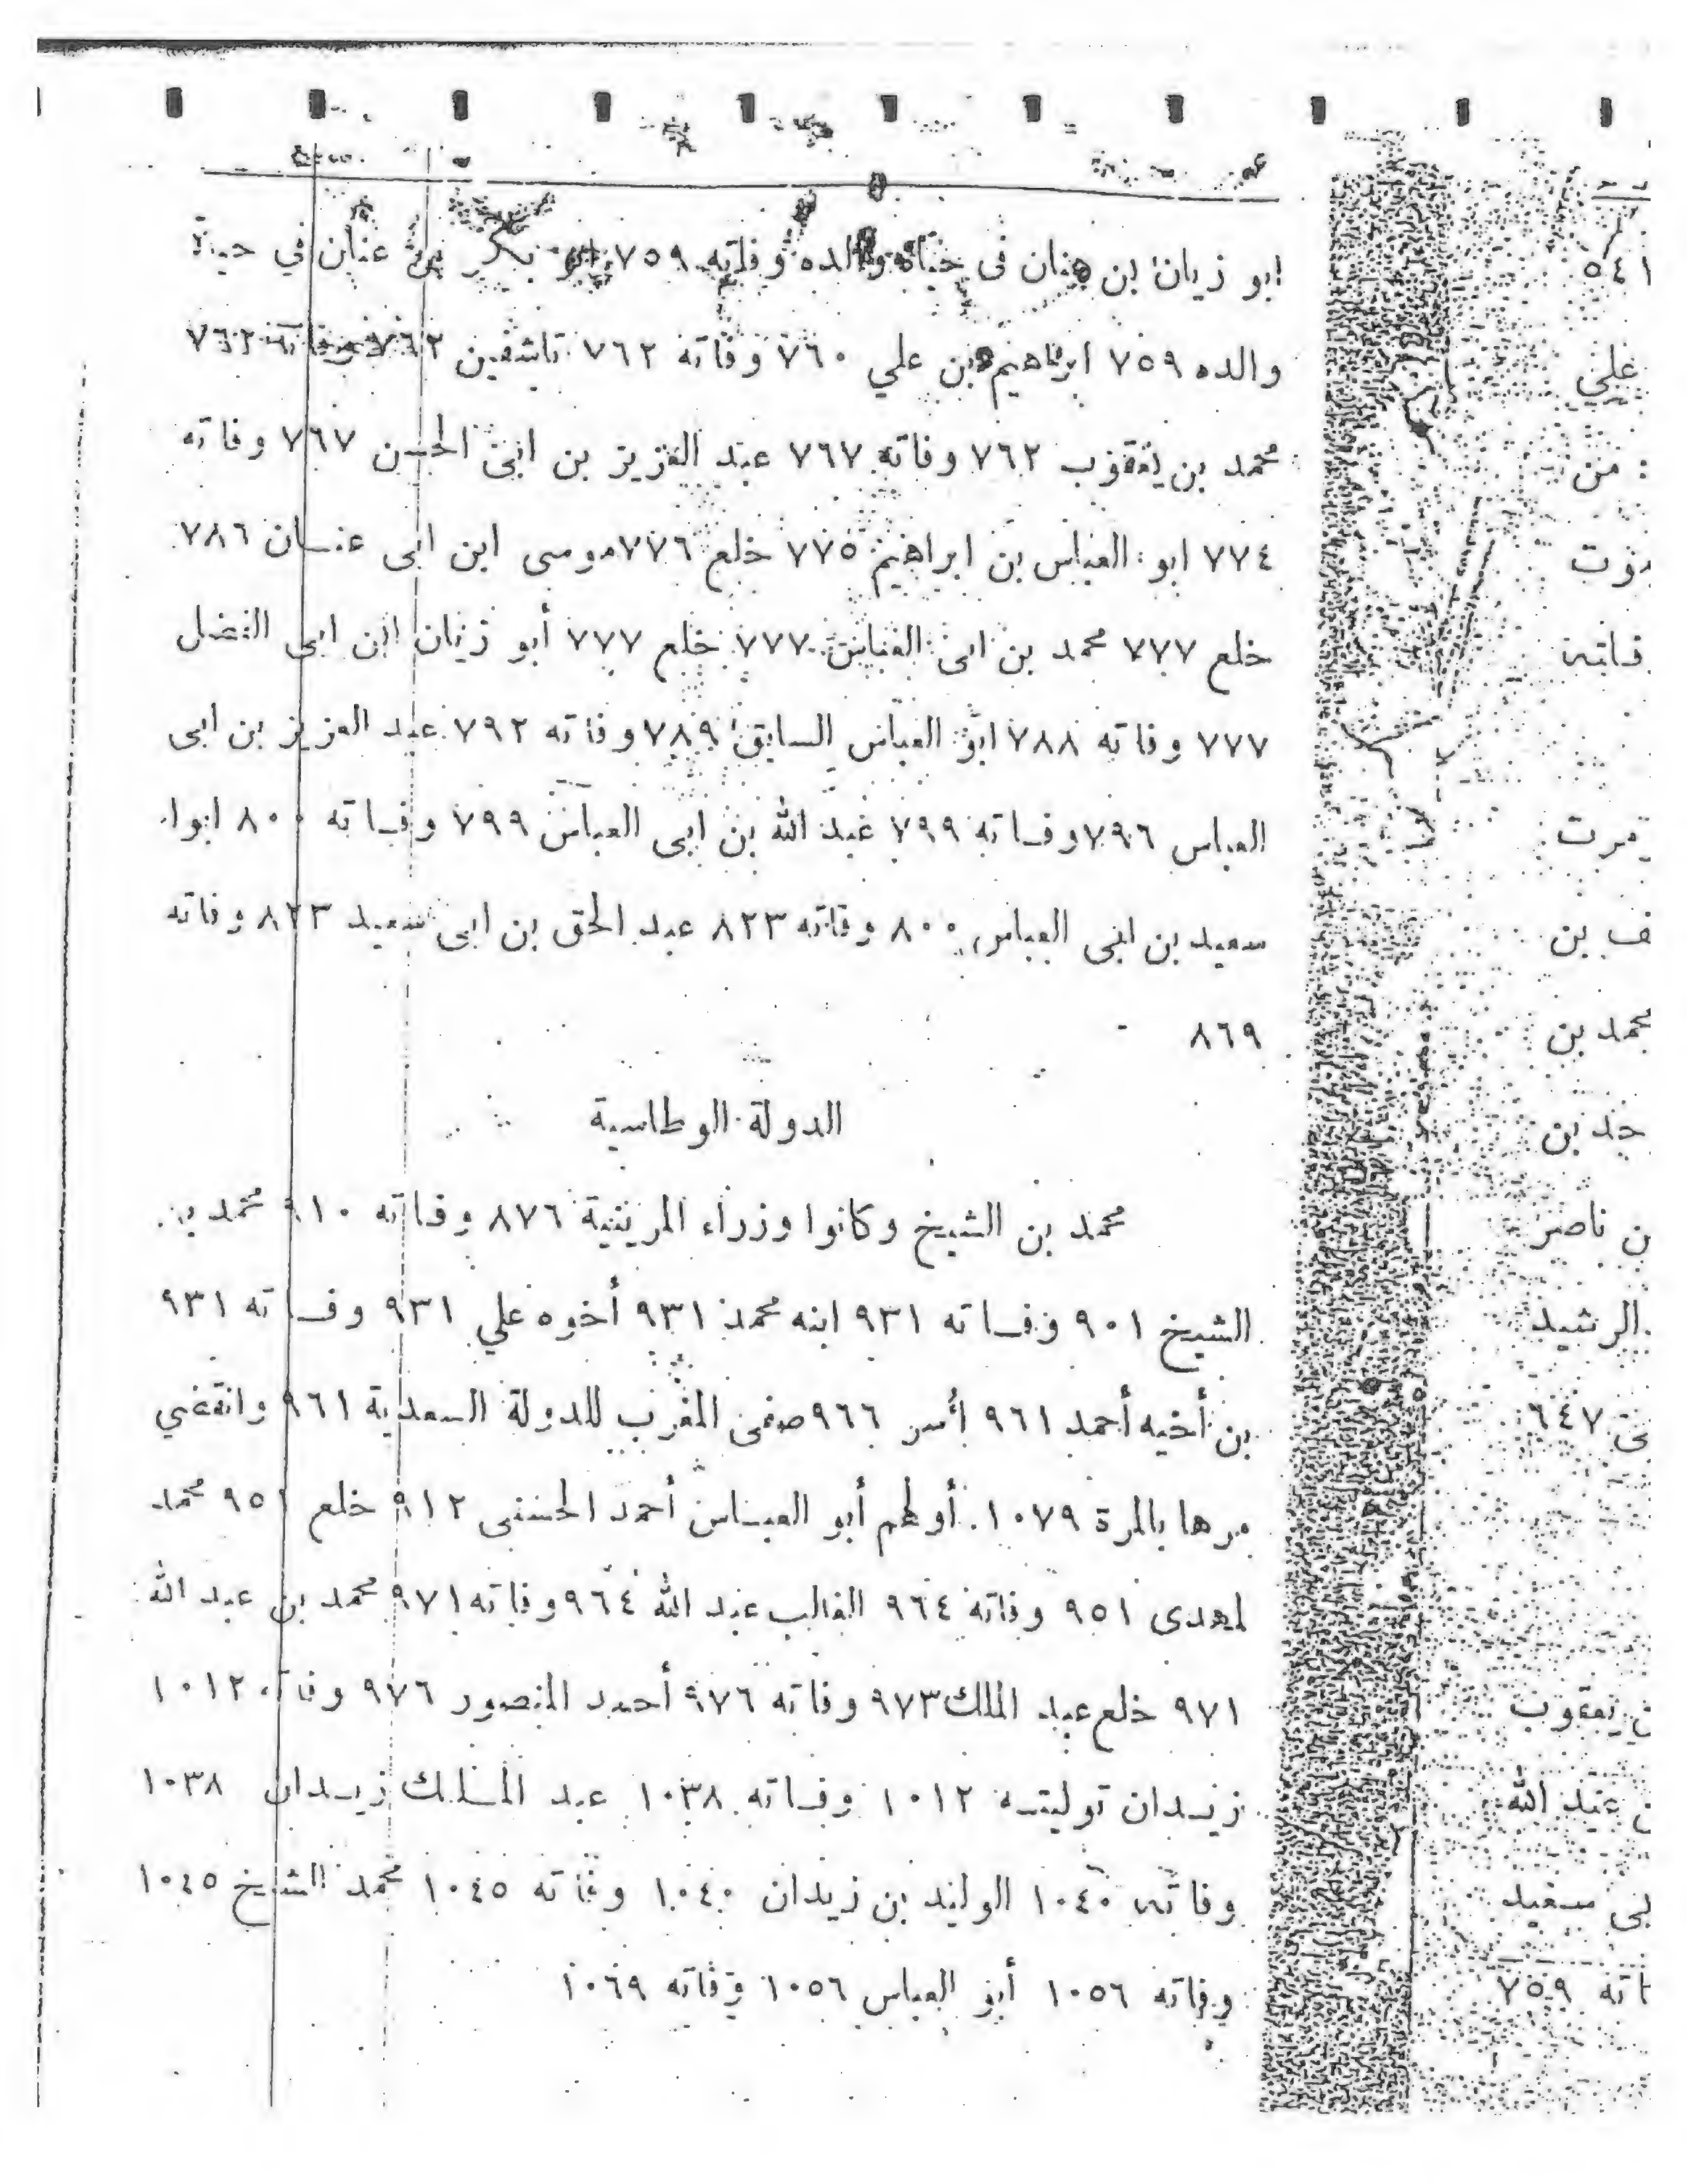 ابو زيان بن عنان فى حياة والده وفاته ٧٥٩ ابو بكر بن عنان في حياة
والده ٧٥٩ ابراهيم بن علي ٧٦٠ وفاته ٧٦٢ تاشفين ٧٦٢ وفاته ٧٦٢
محمد بن يعقوب ٧٦٢ وفاته ٧٦٧ عبد العزيز بن ابى الحسن ٧٦٧ وفاته
٧٧٤ ابو العباس بن ابراهيم ٧٧٥ خلع ٧٧٦ موسى ابن ابى عنان ٧٨٦
خلع ٧٧٧ محمد بن ابى العباس ٧٧٧ خلع ٧٧٧ أبو زيان ابن ابى الفضل
٧٧٧ وفاته ٧٨٨ ابو العباس السابق ٧٨٩ وفاته ٧٩٢ عبد العزيز بن ابى
العباس ٧٩٦ وفاته ٧٩٩ عبد الله بن ابى العباس ٧٩٩ وفاته ٨٠٠ ابوا
سعيد بن ابى العباس ٨٠٠ وفاته ٨٢٣ عبد الحق بن ابى سعيد ٨٢٣ وفاته
٨٦٩
الدولة الوطاسية
محمد بن الشيخ وكانوا وزراء المرينية ٨٧٦ وفاته ٩١٠ محمد بن
الشيخ ٩٠١ وفاته ٩٣١ ابنه محمد ٩٣١ أخوه علي ٩٣١ وفاته ٩٣١
بن أخيه أحمد ٩٦١ أسر ٩٦٦ صفى المغرب للدولة السعدية ٩٦١ وانقضي
مرها بالمرة ١٠٧٩. أولهم أبو العباس أحمد الحسنى ٩١٢ خلع ٩٥١ محمد
لمهدى ٩٥١ وفاته ٩٦٤ الغالب عبد الله ٩٦٤ وفاته ٩٧١ محمد بن عبد الله
٩٧١ خلع عبد الملك ٩٧٣ وفاته ٩٧٦ أحمد المنصور ٩٧٦ وفاته ١٠١٢
زيدان توليته ١٠١٢ وفاته ١٠٣٨ عبد الملك زيدان ١٠٣٨
وفاته ١٠٤٠ الوليد بن زيدان ١٠٤٠ وفاته ١٠٤٥ محمد الشيخ ١٠٤٥
وفاته ١٠٥٦ أبو العباس ١٠٥٦ وفاته ١٠٦٩
٥٤١
علي
من
فاته
ف بن
محمد بن
ن ناصر
الرشيد
٦٤٧
يعقوب
عبد الله
بى سعيد
اته ٧٥٩